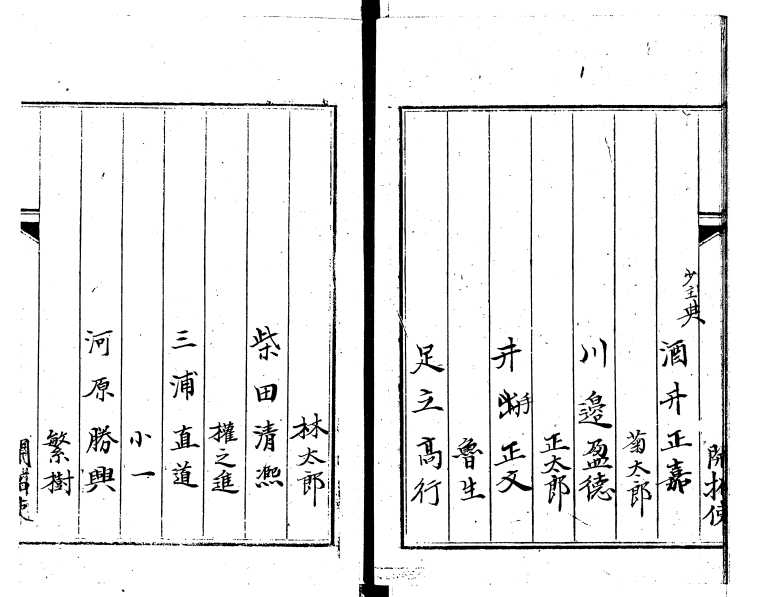 開拓使
少主典
酒井正嘉
菊太郎
川邉盈德
正太郎
井手正文
魯生
足立高行
林太郎
柴田清凞
權之進
三浦直道
小一
河原勝興
繁樹
開拓使